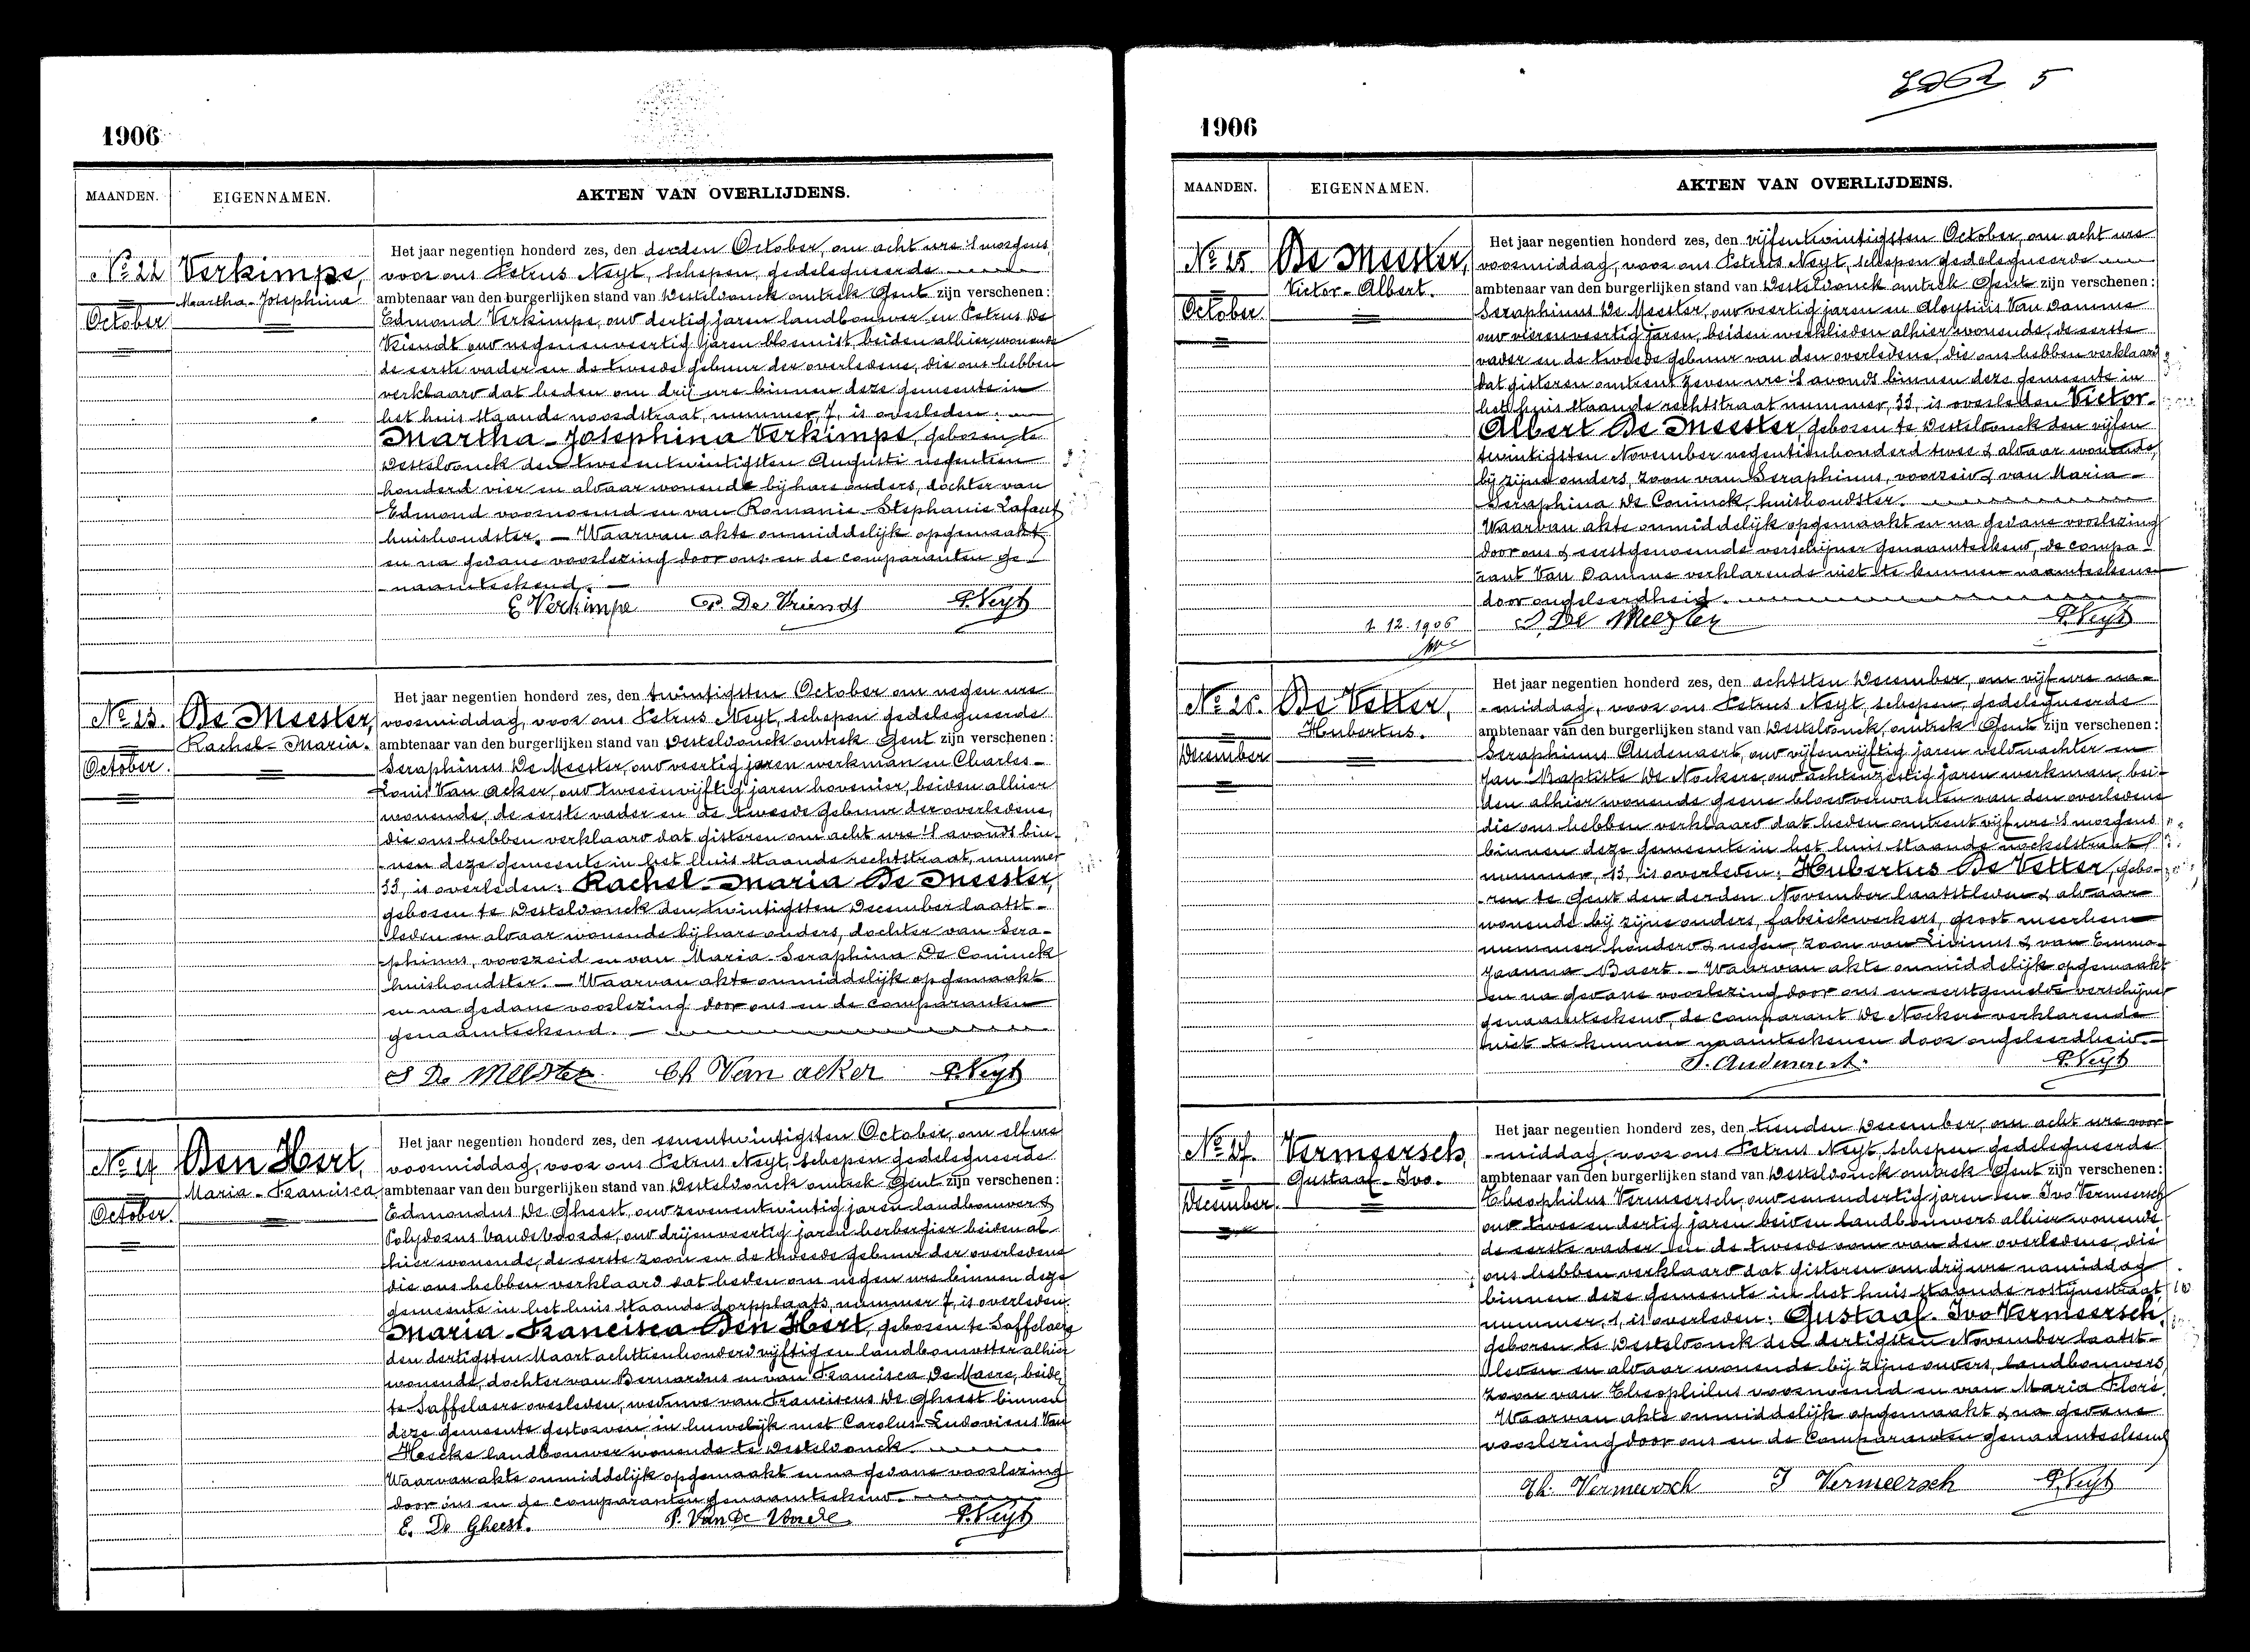 1906
MAANDEN. EIGENNAMEN. AKTEN VAN OVERLIJDENS.
No 22 Verkimpe,
Martha-Josephina
October
Het jaar negentien honderd zes, den derden October, om acht ure 's morgens
voor ons Petrus Neyt, schepen gedelegueerde
ambtenaar van den burgerlijken stand van Desteldonck omtrek Gent zijn verschenen:
Edmond Verkimpe, oud dertig jaren landbouwer en Petrus De
Vriendt oud negenenveertig jaren bloemist, beiden alhier wonende
de eerste vader en de tweede gebuur der overledene, die ons hebben
verklaard dat heden om drij ure binnen deze gemeente in
het huis staande noordstraat, nummer, 7, is overleden:
Martha-Josephina Verkimpe, geboren te
Desteldonck den tweeentwintigsten Augusti negentien
honderd vier en aldaar wonende bij hare ouders, dochter van
Edmond voornoemd en van Romanie-Stephanie Lafaut
huishoudster. — Waarvan akte onmiddelijk opgemaakt
en na gedane voorlezing door ons en de comparanten ge-
naamteekend. —
E Verkimpe P. De Vriendt P. Neyt
No 23. De Meester,
Rachel-Maria.
October.
Het jaar negentien honderd zes, den twintigsten October om negen ure
voormiddag, voor ons Petrus Neyt, schepen gedelegueerde
ambtenaar van den burgerlijken stand van Desteldonck omtrek Gent zijn verschenen:
Seraphinus De Meester, oud veertig jaren werkman en Charles-
Louis Van Acker, oud tweeenvijftig jaren hovenier, beiden alhier
wonende, de eerste vader en de tweede gebuur der overledene,
die ons hebben verklaard dat gisteren om acht ure 's avonds bin-
nen deze gemeente in het huis staande rechtstraat, nummer
33, is overleden: Rachel-Maria De Meester,
geboren te Desteldonck den twintigsten December laatst-
leden en aldaar wonende bij hare ouders, dochter van Sera-
phinus, voorzeid en van Maria-Seraphina De Coninck
huishoudster. — Waarvan akte onmiddelijk opgemaakt
en na gedane voorlezing door ons en de comparanten
genaamteekend. —
S De Meester Ch Van acker P. Neyt
No 24 Den Hert,
Maria-Francisca
October.
Het jaar negentien honderd zes, den eenentwintigsten October, om elf ure
voormiddag, voor ons Petrus Neyt, schepen gedelegueerde
ambtenaar van den burgerlijken stand van Desteldonck omtrek Gent zijn verschenen:
Edmondus De Gheest, oud zevenentwintig jaren landbouwer &
Polydorus Vande Voorde, oud drijenveertig jaren herbergier beiden al-
hier wonende, de eerste zoon en de tweede gebuur der overledene
die ons hebben verklaard dat heden om negen ure binnen deze
gemeente in het huis staande dorpplaats, nummer 7, is overleden
Maria-Francisca Den Hert, geboren te Saffelaere
den dertigsten Maart achttienhonderd vijftig en landbouwster alhier
wonende, dochter van Bernardus en van Francisca De Maere, beide
te Saffelaere overleden, weduwe van Franciscus De Gheest binnen
deze gemeente gestorven, in huwelijk met Carolus-Ludovicus Van
Hecke landbouwer wonende te Desteldonck.
Waarvan akte onmiddelijk opgemaakt en na gedane voorlezing
door ons en de comparanten genaamteekend.
E. De Gheest. P. Van De Voorde P. Neyt
5
1906
MAANDEN. EIGENNAMEN. AKTEN VAN OVERLIJDENS.
No 25 De Meester,
Victor-Albert.
October.
Het jaar negentien honderd zes, den vijfentwintigsten October, om acht ure
voormiddag, voor ons Petrus Neyt, schepen gedelegueerde
ambtenaar van den burgerlijken stand van Desteldonck omtrek Gent zijn verschenen:
Seraphinus De Meester, oud veertig jaren en Aloysius Van Damme
oud vierenveertig jaren, beiden werklieden alhier wonende, de eerste
vader en de tweede gebuur van den overledene, die ons hebben verklaard
dat gisteren omtrent zeven ure 's avonds binnen deze gemeente in
het huis staande rechtstraat nummer, 33, is overleden Victor-
Albert De Meester geboren te Desteldonck den vijfen
twintigsten November negentienhonderd twee & aldaar wonende
bij zijne ouders, zoon van Seraphinus, voorzeid & van Maria-
Seraphina De Coninck, huishoudster.
Waarvan akte onmiddelijk opgemaakt en na gedane voorlezing
door ons & eerstgenoemde verschijner genaamteekend, de compa-
rant Van Damme verklarende niet te kunnen naamteekenen
door ongeleerdheid.
1. 12. 1906
S. De Meester P. Neyt
No 26. De Vetter,
Hubertus.
December
Het jaar negentien honderd zes, den achtsten December, om vijf ure na-
middag, voor ons Petrus Neyt, schepen gedelegueerde
ambtenaar van den burgerlijken stand van Desteldonck, omtrek Gent zijn verschenen:
Seraphinus Audenaert, oud vijfenvijftig jaren veldwachter en
Jan Baptiste De Nockere, oud achtenzestig jaren werkman, bei-
den alhier wonende geene bloedverwanten van den overledene
die ons hebben verklaard dat heden omtrent vijf ure 's morgens
binnen deze gemeente in het huis staande nockelstraat
nummer, 13, is overleden: Hubertus De Vetter, gebo-
ren te Gent den derden November laatstleden & aldaar
wonende bij zijne ouders, fabriekwerkers, groot meerhem
nummer honderd & negen, zoon van Livinus & van Emma-
Joanna Baert. — Waarvan akte onmiddelijk opgemaakt
en na gedane voorlezing door ons en eerstgemelde verschijner
genaamteekend, de comparant De Nockere verklarende
niet te kunnen naamteekenen door ongeleerdheid. —
S. Audenaert. P. Neyt
No 27. Vermeersch,
Gustaaf-Ivo.
December.
Het jaar negentien honderd zes, den tienden December, om acht ure voor-
middag, voor ons Petrus Neyt, schepen gedelegueerde
ambtenaar van den burgerlijken stand van Desteldonck omtrek Gent zijn verschenen:
Theophilus Vermeersch, oud eenendertig jaren en Ivo Vermeersch
oud twee en dertig jaren beiden landbouwers alhier wonende
de eerste vader en de tweede oom van den overledene, die
ons hebben verklaard dat gisteren om drij ure namiddag
binnen deze gemeente in het huis staande rostijnestraat
nummer, 1, is overleden: Gustaaf-Ivo Vermeersch,
geboren te Desteldonck den dertigsten November laatst-
leden en aldaar wonende bij zijne ouders, landbouwers,
zoon van Theophilus voornoemd en van Maria Flore.
Waarvan akte onmiddelijk opgemaakt & na gedane
voorlezing door ons en de Comparanten genaamteekend
Th. Vermeersch I Vermeersch P. Neyt